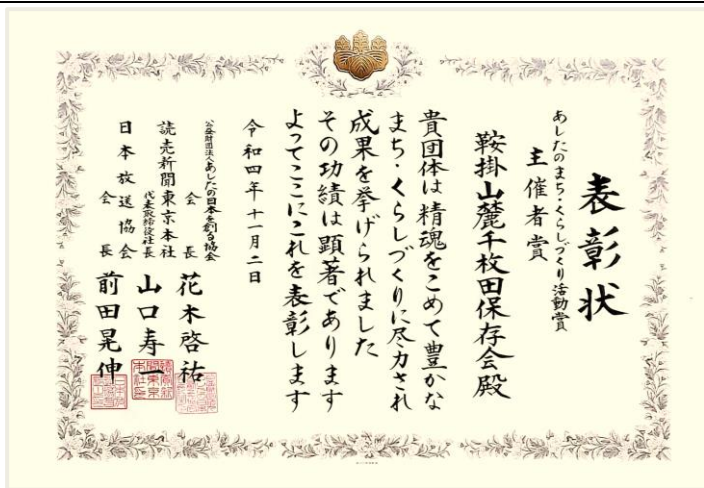 表彰状
あしたのまち・くらしづくり活動賞
主催者賞
鞍掛山麓千枚田保存会殿
貴団体は精魂をこめて豊かな
まち・くらしづくりに尽力され
成果を挙げられました
その功績は顕著であります
よってここにこれを表彰します
令和四年十一月二日
公益財団法人あしたの日本を創る協会
会長 花木啓祐
読売新聞東京本社
代表取締役社長 山口寿一
日本放送協会
会長 前田晃伸